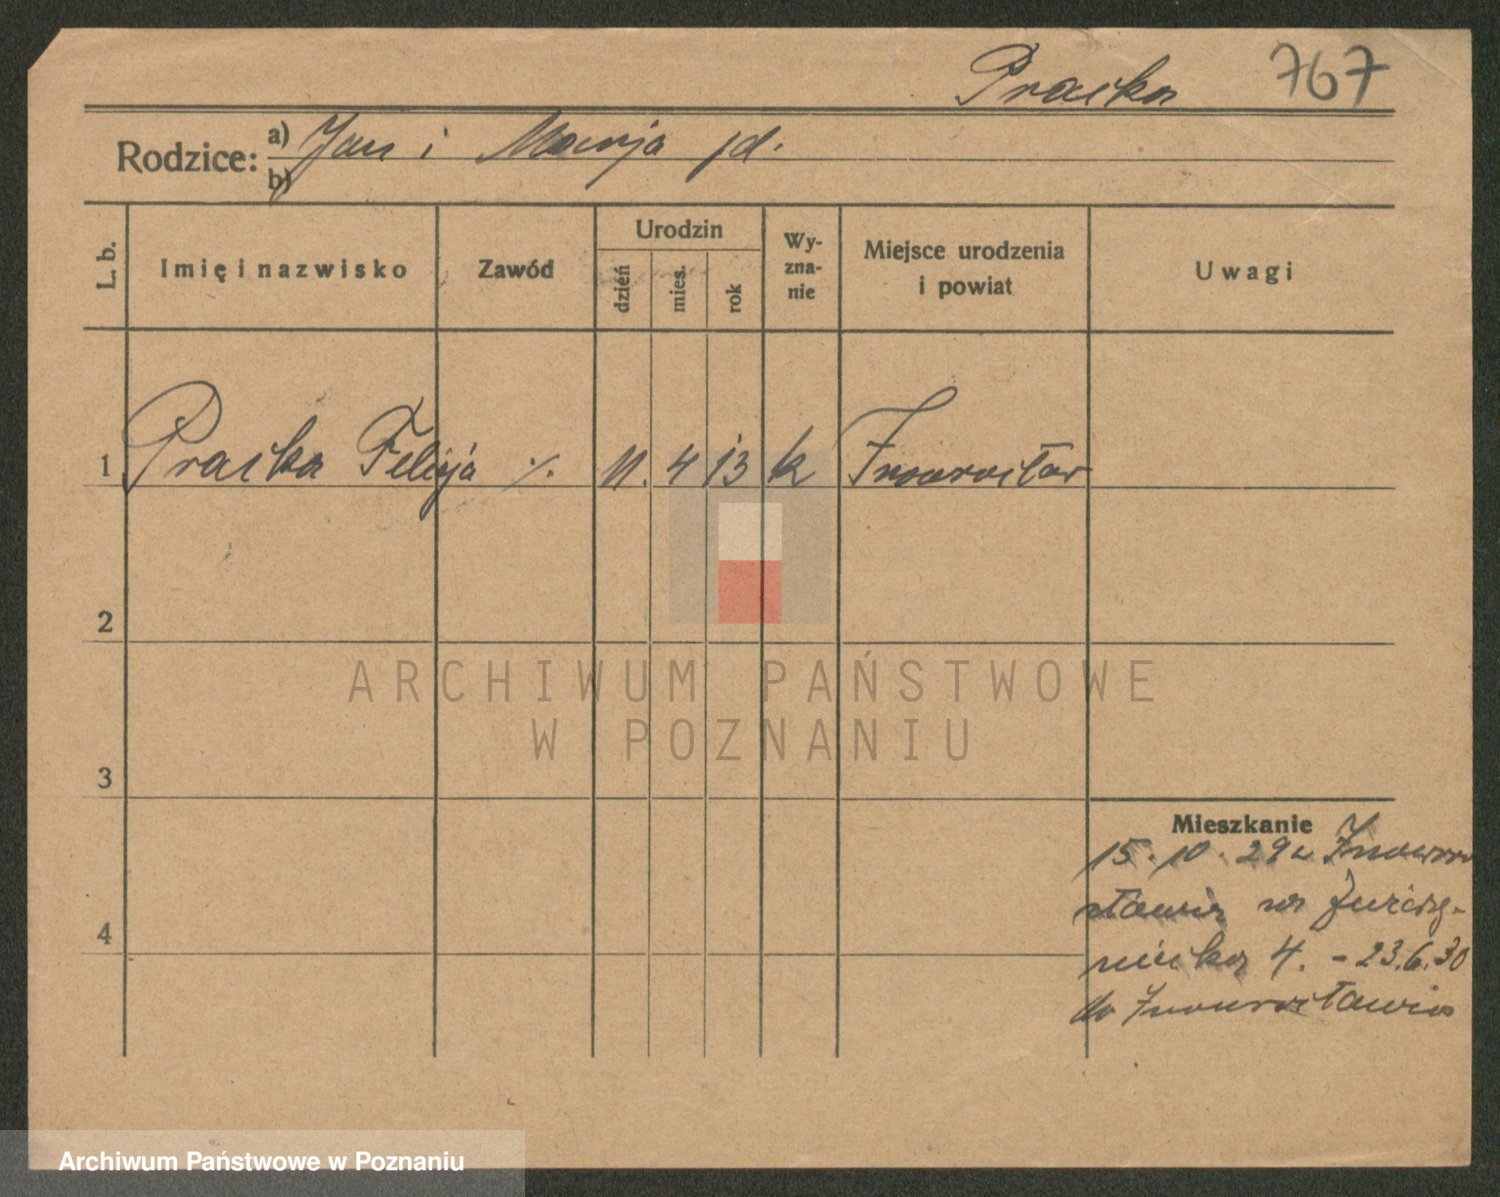 Praska 767
Rodzice: a) Jan i Marja jd.
b)
L. b. Imię i nazwisko Zawód Urodzin dzień mies. rok Wyznanie Miejsce urodzenia i powiat Uwagi
1 Praska Felicja ./. 11. 4 13 k Inowrocław
2
3
4
Mieszkanie
15.10.29 z Inowro
cławia na
4. - 23.6.30
do Inowrocławia
ARCHIWUM PAŃSTWOWE
W POZNANIU
Archiwum Państwowe w Poznaniu